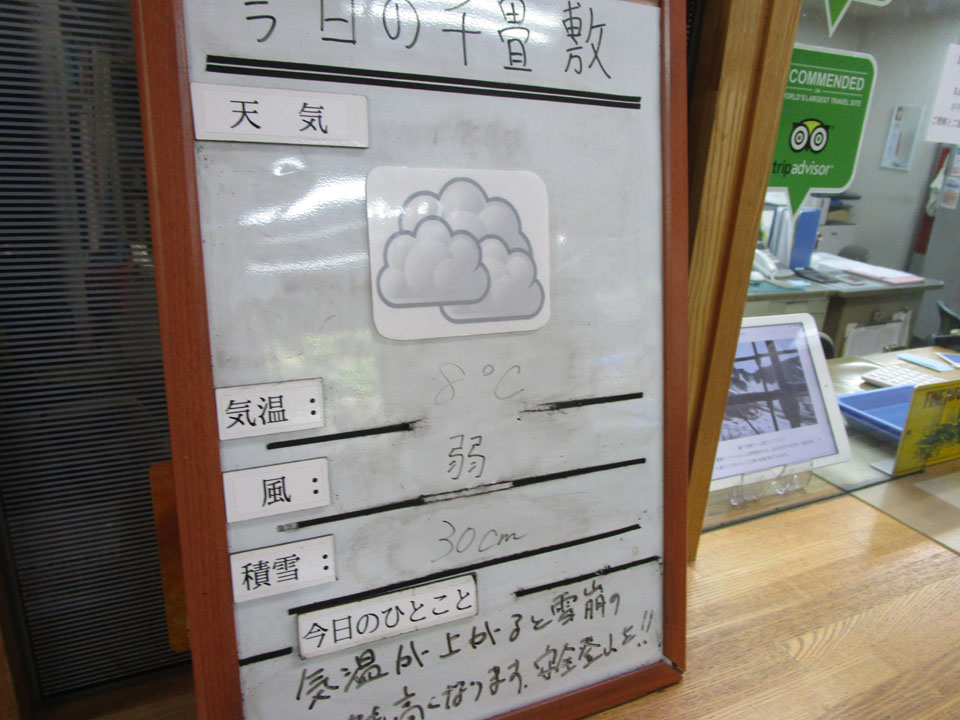 今日の千畳敷
天気
気温： 8℃
風： 弱
積雪： 30cm
今日のひとこと
気温が上がると雪崩の
高くなります。安全登山を!!
COMMENDED
ON
WORLD'S LARGEST TRAVEL SITE
tripadvisor